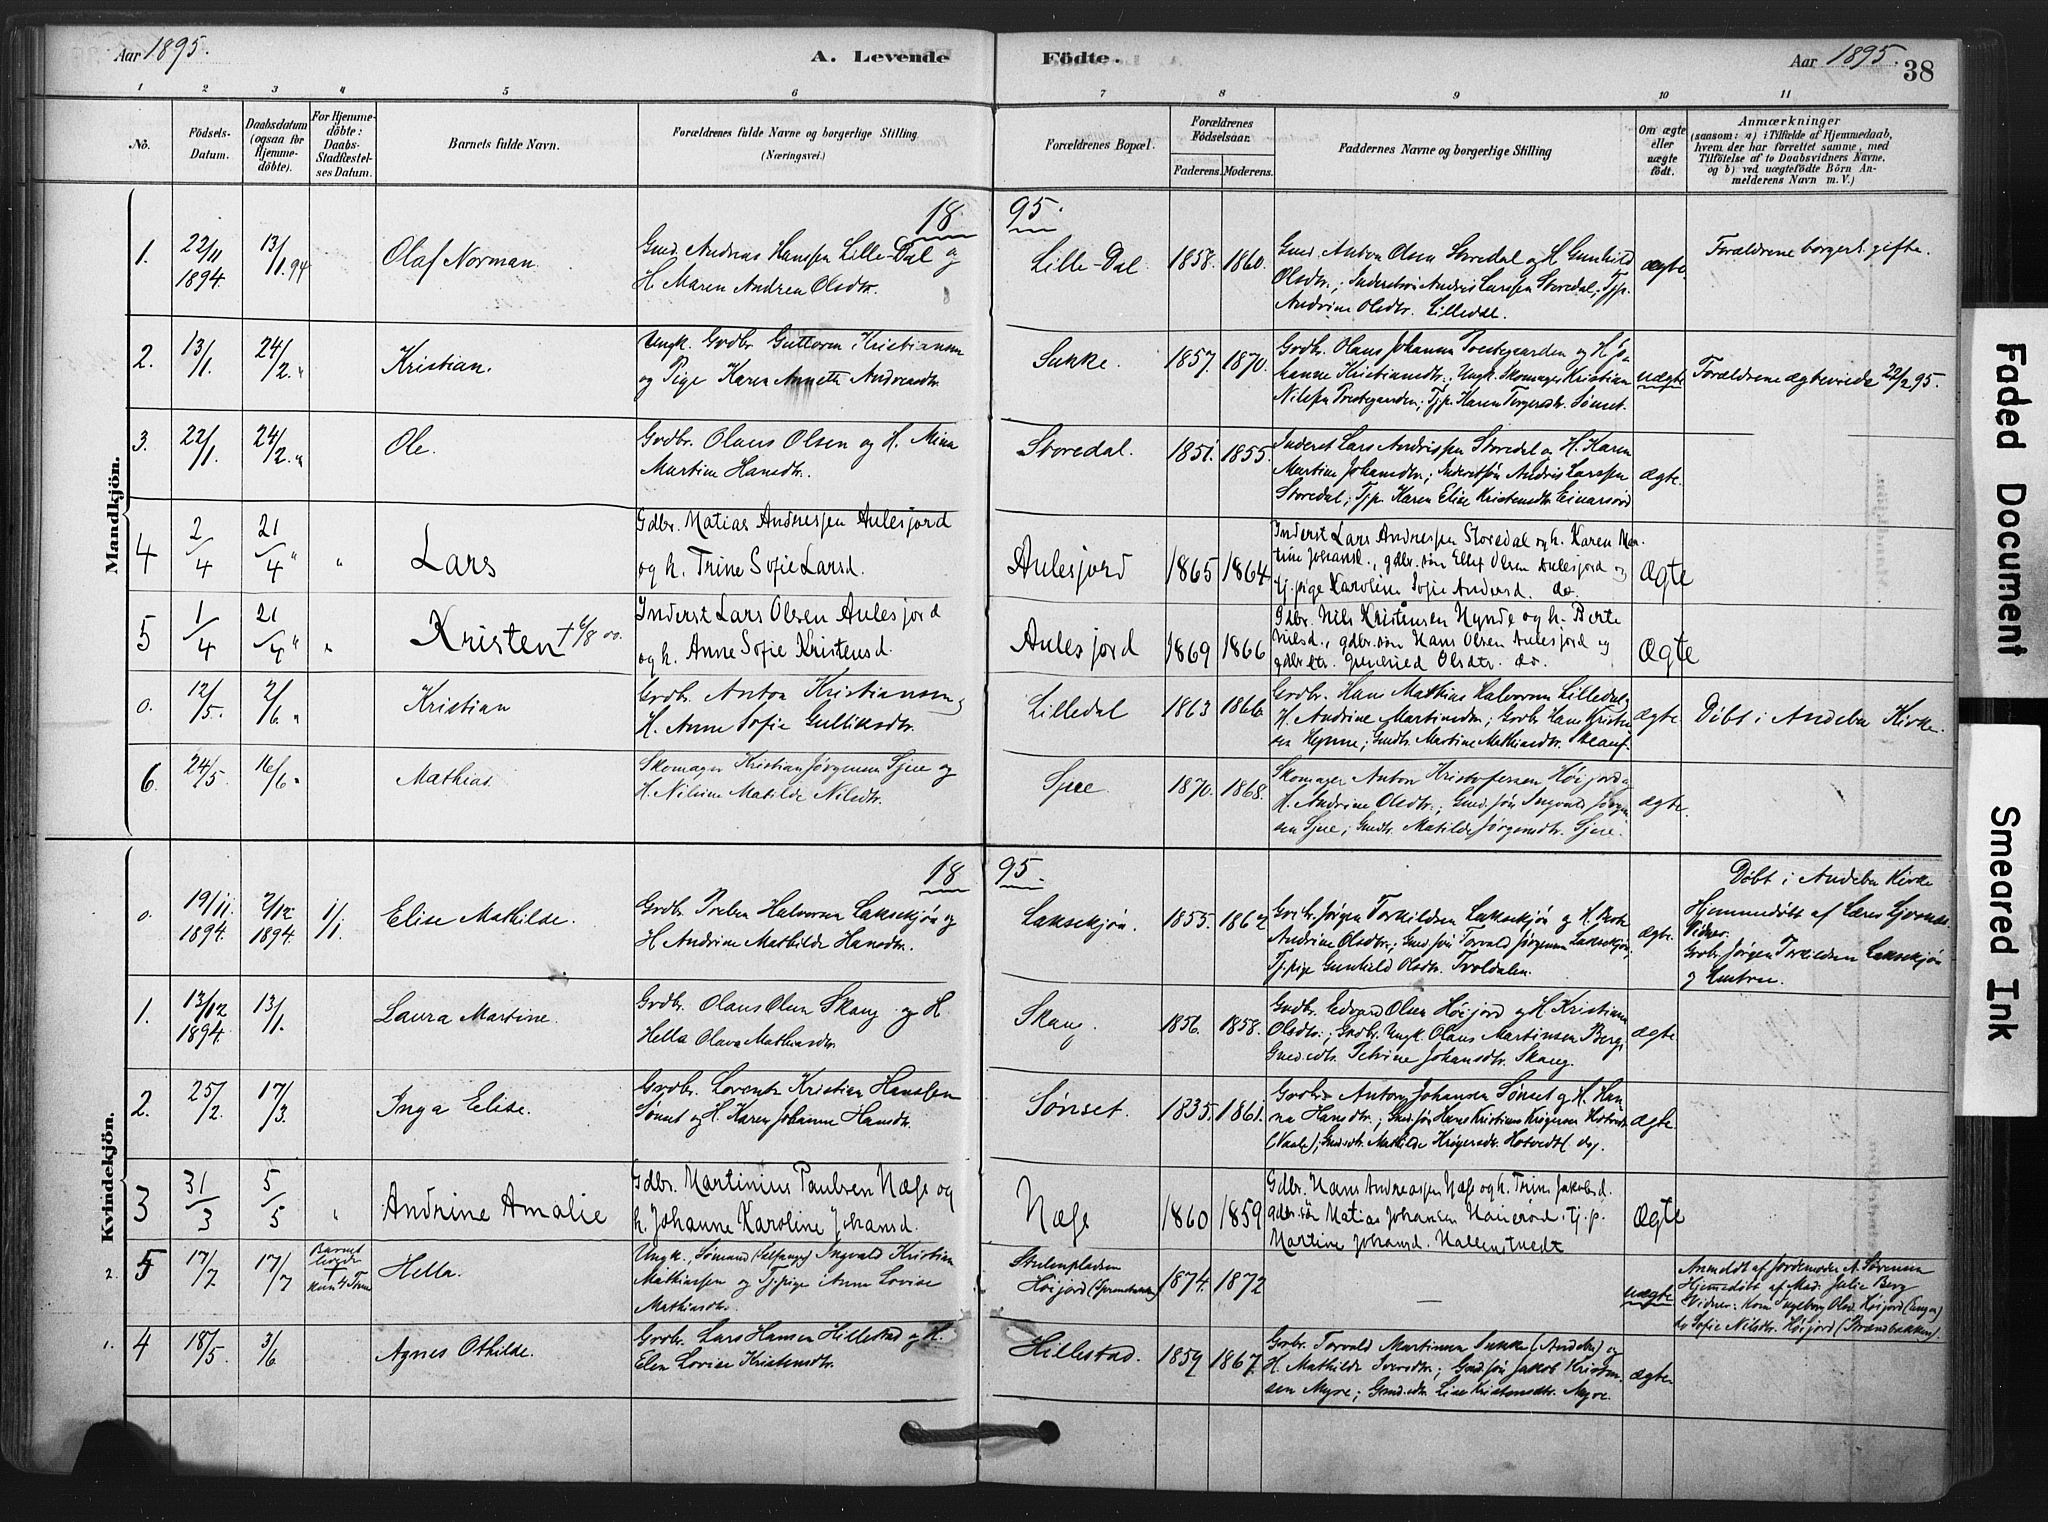 Aar 1895.
A. Levende Födte.
Aar 1895.
38
1 2 3 4 5 6 7 8 9 10 11
No.
Födsels-Datum.
Daabsdatum (ogsaa for Hjemme-döbte).
For Hjemme-döbte: Daabs-Stadfæstel-ses Datum.
Barnets fulde Navn.
Forældrenes fulde Navne og borgerlige Stilling.
(Næringsvei.)
Forældrenes Bopæl.
Forældrenes Födselsaar.
Faderens. Moderens.
Faddernes Navne og borgerlige Stilling
Om ægte eller uægte födt.
Anmærkninger
(saasom: a) i Tilfælde af Hjemmedaab,
hvem der har forrettet samme, med
Tilföielse af to Daabsvidners Navne,
og b) ved uægtefödte Börn An-
melderens Navn m. V.)
Mandkjön.
1895.
1. 22/11 1894. 13/1.94 Olaf Norman.
Gmd. Andreas Hanssen Lille-Dal og
H. Maren Andrea Olsdtr.
Lille-Dal. 1858. 1860.
Gmd. Anton Olsen Storedal og H. Gunhild
Olsdtr.; Andris Larssen Storedal; Tjp.
Andrine Olsdtr. Lilledal.
ægte
Forældrene borgerl. gifte.
2. 13/1. 24/2. " Kristian.
Ungk. Grdbr. Guttorm Kristiansen
og Pige Karen Annette Andreasdtr.
Sukke. 1857. 1870.
Grdb. Olaus Johansen Prestegaarden og H. Jo-
hanne Kristiansdtr.; Ungk. Skomager Kristian
Nilssen Prestegaarden; Tjp. Karen Torgersdtr. Sønset.
uægte
Forældrene ægteviede 22/2 95.
3. 22/1. 24/2. " Ole.
Grdbr. Olaus Olsen og H. Mina
Martine Hansdtr.
Storedal. 1851. 1855.
Inderst Lars Andrissen Storedal og H. Karen
Martine Johansdtr.; Inderstsøn Andris Larssen
Storedal; Tjp. Karen Elise Kristensdtr.
ægte.
4 2/4 21/4 " " Lars
Gdbr. Matias Andresen Aulesjord
og h. Trine Sofie Larsd.
Aulesjord 1865 1864
Inderst Lars Andresen Storedal og h. Karen Mar-
tine Johansd., gdbr.søn Ellef Olsen Aulesjord og
tj.pige Karoline Sofie Andersd. do.
Ægte
5 1/4 21/4 " " Kristen + 6/8 00.
Inderst Lars Olsen Aulesjord
og h. Anne Sofie Kristensd.
Aulesjord 1869 1866
Gdbr. Nils Kristensen Hynde og h. Berte
Nilsd., gdbr.søn Hans Olsen Aulesjord og
gdbr.dtr. Olsdtr. do.
Ægte
0. 12/5. 2/6 " Kristian
Grdbr. Anton Kristiansen og
H. Anne Sofie Gulliksdtr.
Lilledal 1863 1866.
Grdbr. Hans Mathias Halvorsen Lilledal og
H. Andrine Martinsdtr.; Grdbr. Hans Kristen-
sen Hynne; Gmdtr. Martine Mathisdtr.
ægte
Döbt i Andebu Kirke.
6. 24/5. 16/6 " Mathias
Skomager Kristian Jörgensen Sjue og
H. Nilsine Matilde Nilsdtr.
Sjue. 1870. 1868.
Skomager Anton Kristofersen Höijord og
H. Andrine Olsdtr.; Gmd.sön Ingvald Jörgen-
sen Sjue; Gmdtr. Matilde Jörgensdtr. Sjue.
ægte.
Kvindekjön.
1895.
0. 19/11. 1894. 2/12 1894. 1/1. Elise Mathilde.
Grdbr. Preben Halvorsen Laksekjön og
H. Andrine Mathilde Hansdtr.
Laksekjön. 1855. 1862
Grdbr. Jörgen Torkildsen Laksekjön og H. Berte
Andrine Olsdtr.; Gmd.sön Torvald Jörgensen Laksekjön;
Tj.pige Gunhild Olsdtr. Troldalen.
ægte.
Döbt i Andebu Kirke
Hjemmedöbt af Lærer
Vidner:
Grdbr. Jörgen Torkildsen Laksekjön
og Hustru.
1. 13/12 1894. 13/1. Laura Martine.
Grdbr. Olaus Olsen Skaug og H.
Hella Olava Mathiasdtr.
Skaug. 1856. 1858.
Grdbr. Edvard Olsen Höijord og H. Kristiane
Olsdtr.; Grdbr. Ungk. Olaus Martinsen Berg;
Gmd.edtr. Petrine Johansdtr. Skaug.
ægte.
2. 25/2. 17/3. Inga Elise.
Grdbr. Lorents Kristian Hanssen
Sönset og H. Karen Johanne Hansdtr.
Sönset. 1835. 1861.
Grdbr. Anton Johansen Sönset og H. Han-
na Hansdtr.; Gmd.sön Hans Kristian Krögersen Hotvedt
(Vaale); Gmd.dtr. Mathilde Krögersdtr. Hotvedt (do).
ægte.
3 31/3 5/5 " Andrine Amalie
Gdbr. Martinius Paulsen Næss og
h. Johanne Karoline Johansd.
Næss 1860 1859
Gdbr. Hans Andreassen Næss og h. Trine Jakobsd.
gdbr.søn Matias Johansen Hanerød. Tj.p.
Martine Johansd. Hallenstvedt
Ægte
2. 5 17/7 17/7 Barnet levede kun 4 Timer Hella.
Ungk. Sömand Ingvald Kristian
Mathiassen og Tj.pige Anne Lovise
Mathiasdtr.
Höijord 1874. 1872
—
uægte
Anmeldt af Jordemoder A. Sörensen
Hjemmedöbt af Mad. Julie Berg
Vidner: Kone Ingeborg Olsd. Höijord
do Sofie Nilsdtr. Höijord (Brændbakken).
1. 4 18/5. 3/6 Agnes Othilde.
Grdbr. Lars Hansen Hillestad og H.
Elen Lovise Kristensdtr.
Hillestad. 1859 1867.
Grdbr. Torvald Martinsen Sukke (Andebu) og
H. Mathilde Iversdtr.; Gmd.sön Jakob Kristen-
sen Myre; Gmd.edtr. Lise Kristensdtr. Myre.
ægte.
Faded Document
Smeared Ink